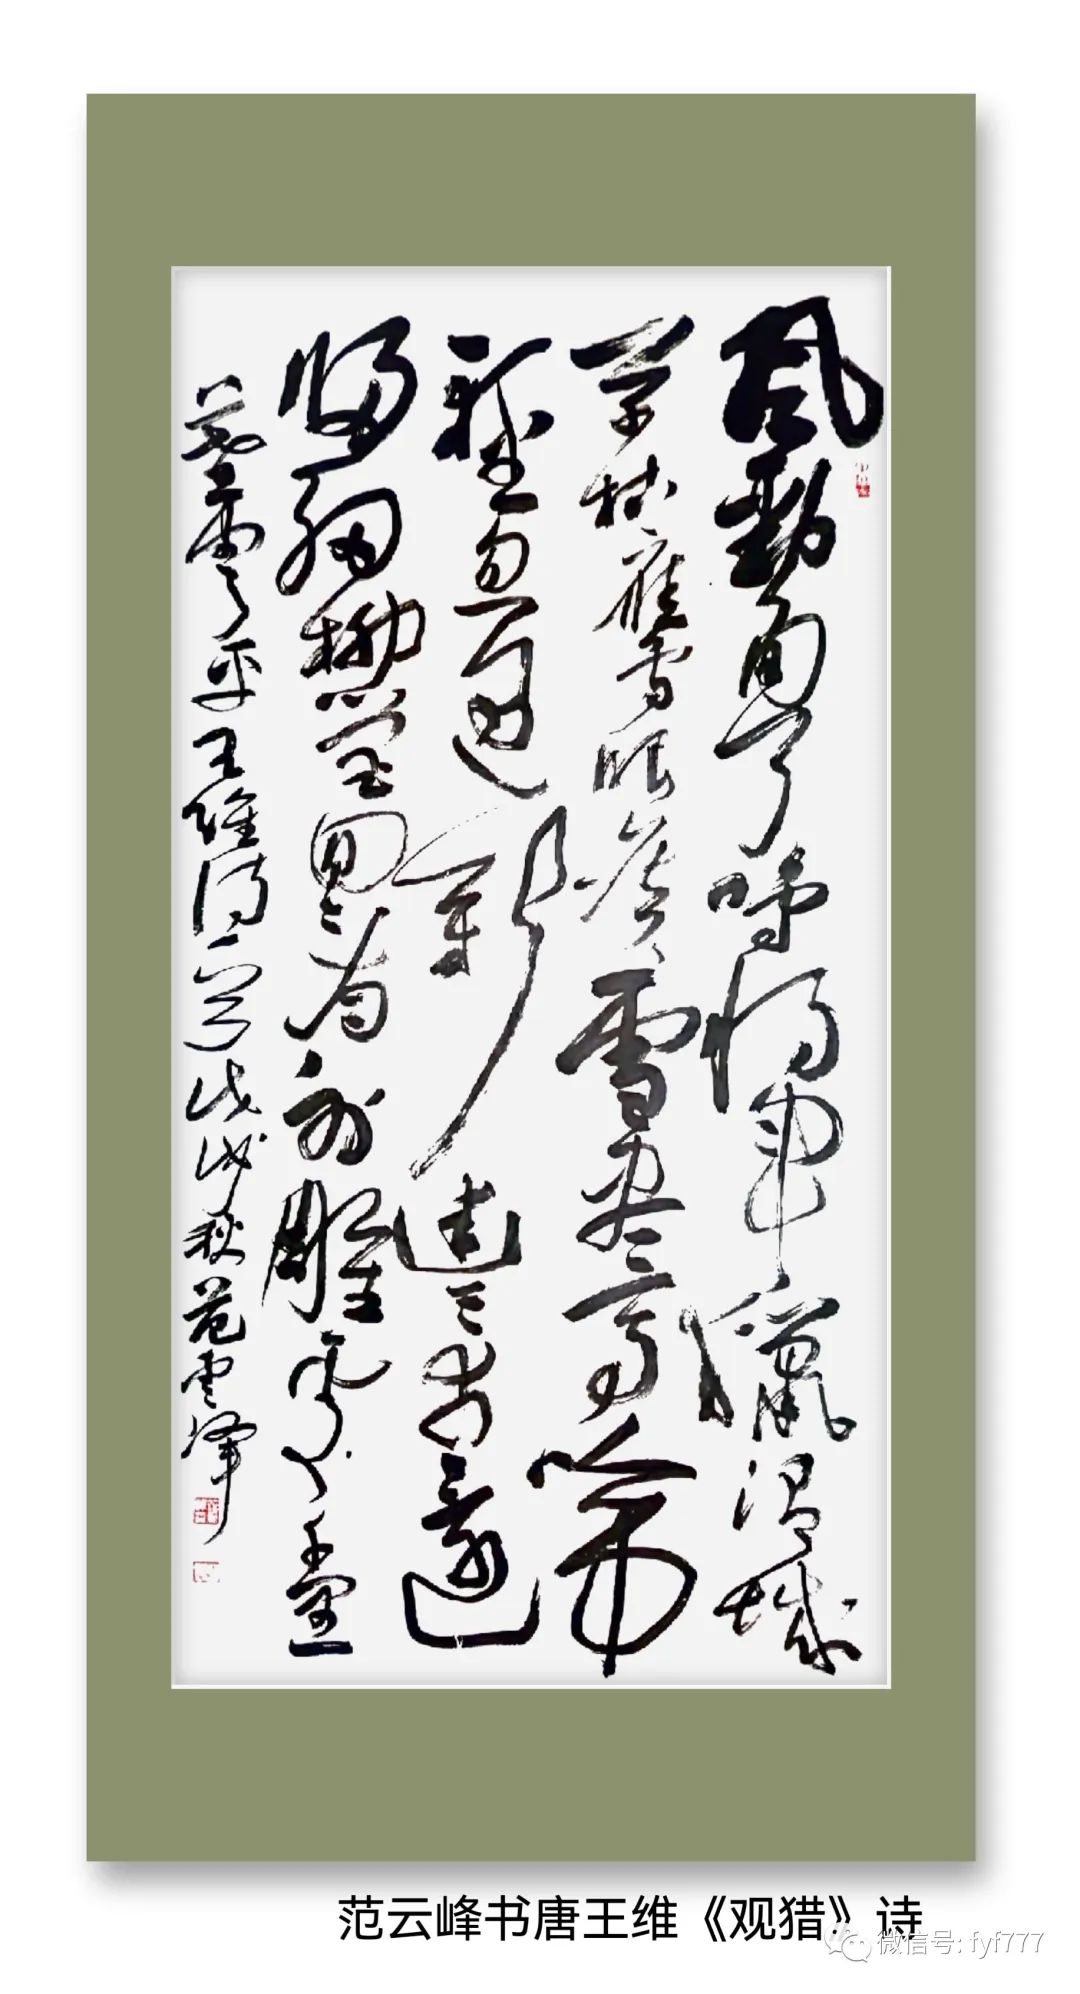 風勁角弓鳴將軍獵渭城
草枯鷹眼疾雪盡馬蹄
輕忽過新豐市還
歸細柳營回看射雕處千里
暮雲平王維詩戊戌秋范雲峰
范云峰书唐王维《观猎》诗
微信号: fyf777